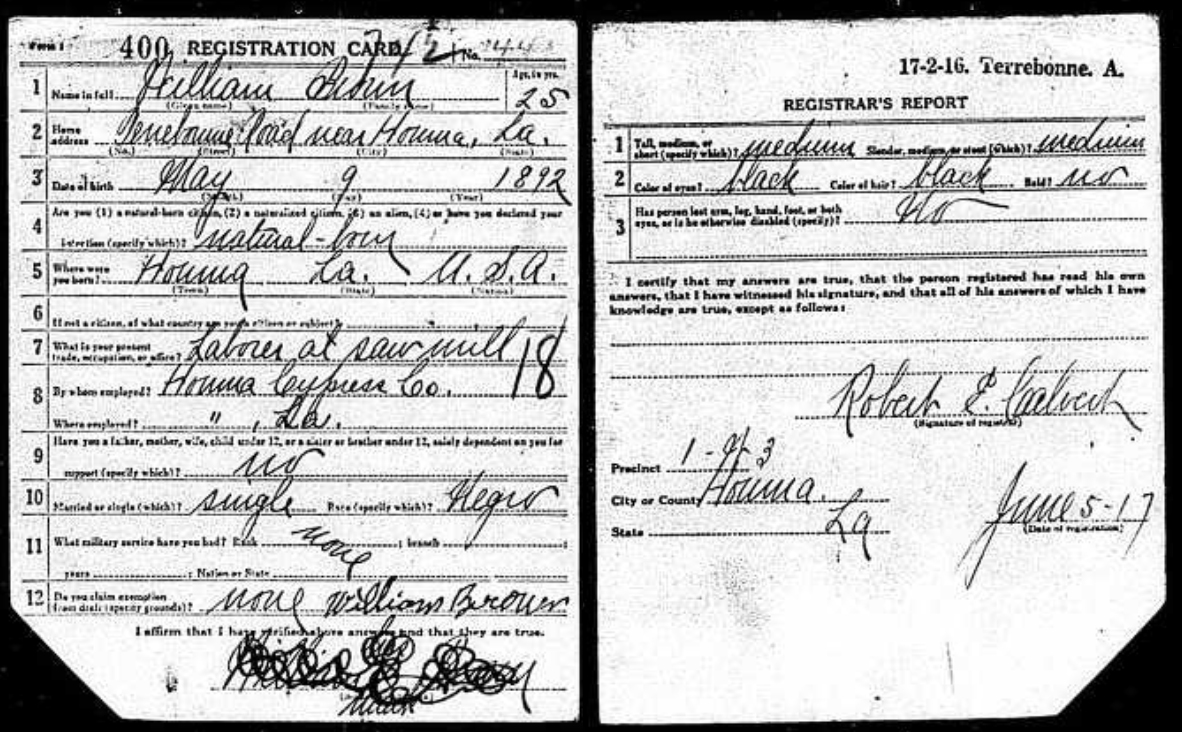 Form 1 400 REGISTRATION CARD No.
1 Name in full William (Given name) (Family name) Age, in yrs. 25
2 Home address Terrebonne Road near Houma, La. (No.) (Street) (City) (State)
3 Date of birth May 9 1892 (Month) (Day) (Year)
4 Are you (1) a natural-born citizen, (2) a naturalized citizen, (3) an alien, (4) or have you declared your
intention (specify which)? natural-born
5 Where were you born? Houma La. U.S.A. (Town) (State) (Nation)
6 If not a citizen, of what country are you a citizen or subject?
7 What is your present trade, occupation, or office? Laborer at saw mill 18
8 By whom employed? Houma Cypress Co.
Where employed? " , La.
9 Have you a father, mother, wife, child under 12, or a sister or brother under 12, solely dependent on you for
support (specify which)? no
10 Married or single (which)? single Race (specify which)? Negro
11 What military service have you had? Rank none ; branch ;
years ; Nation or State
12 Do you claim exemption from draft (specify grounds)? none William
I affirm that I have verified above answers and that they are true.
mark
17-2-16. Terrebonne. A.
REGISTRAR'S REPORT
1 Tall, medium, or short (specify which)? medium Slender, medium, or stout (which)? medium
2 Color of eyes? black Color of hair? black Bald? no
3 Has person lost arm, leg, hand, foot, or both eyes, or is he otherwise disabled (specify)? No
I certify that my answers are true, that the person registered has read his own
answers, that I have witnessed his signature, and that all of his answers of which I have
knowledge are true, except as follows:
Robert E. Calvert
(Signature of registrar)
Precinct 1 - 3
City or County Houma.
State La
June 5-17
(Date of registration)